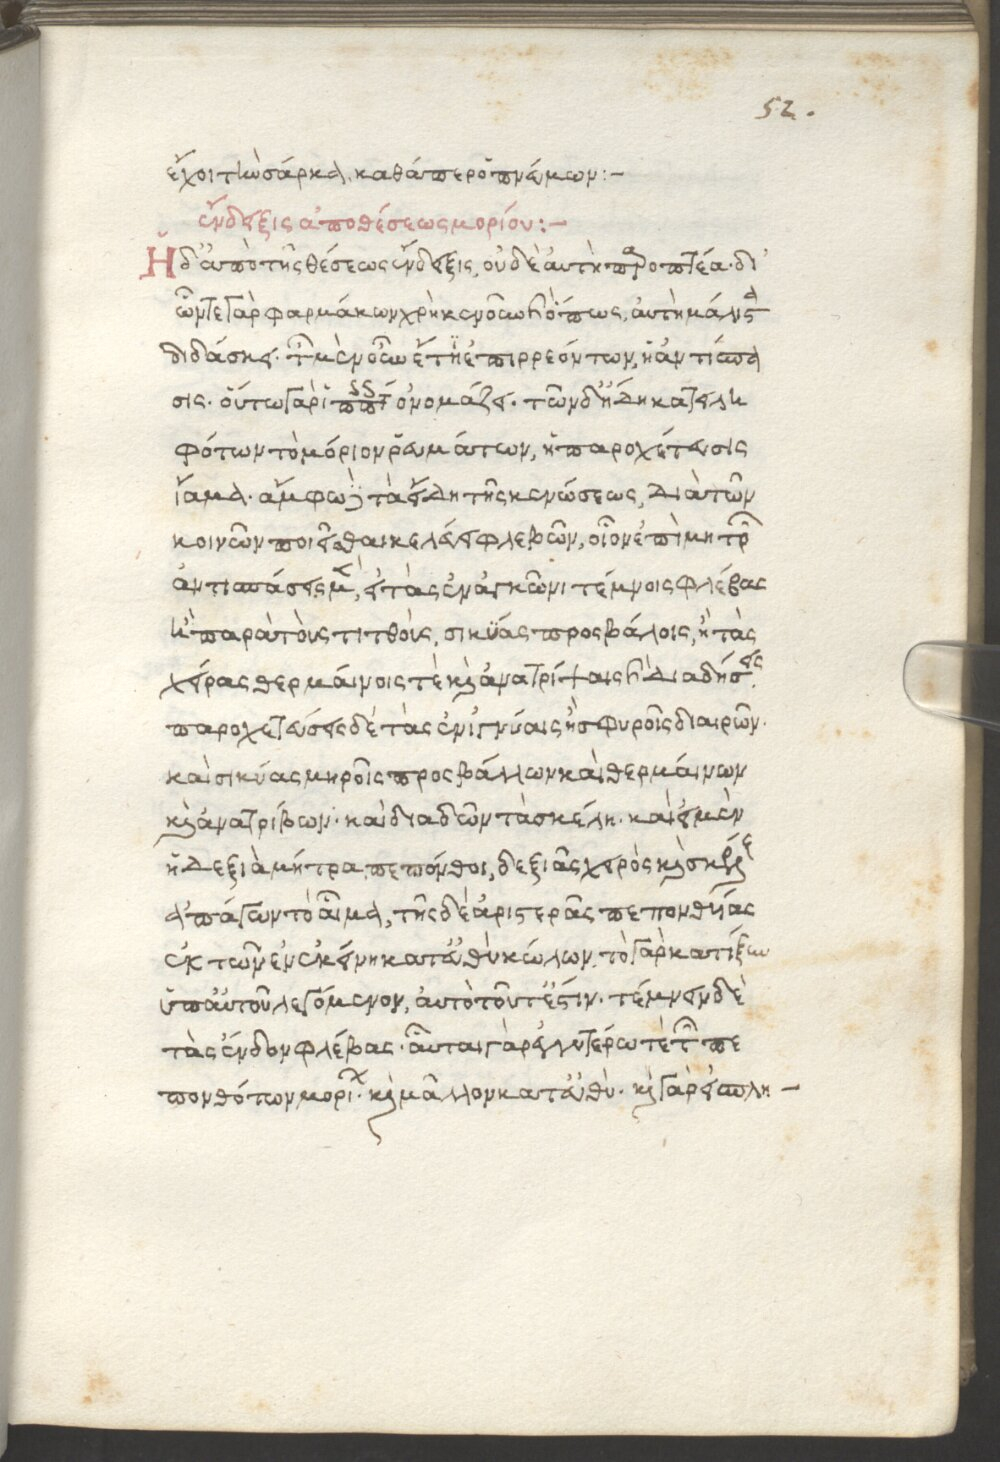 52.
ἔχοι τὴν σάρκα, καθάπερ ὁ πνεύμων:-
ἔνδειξις ἀπὸ θέσεως μορίου:-
Ἡ δ' ἀπὸ τῆς θέσεως ἔνδειξις, οὐδὲ αὐτὴ παροπτέα. δι'
ὧν τε γὰρ φαρμάκων χρὴ κενοῦν καὶ ὅπως, αὐτὴ μάλιστα
διδάσκει. τῶν μὲν οὖν ἔτι ἐπιρρεόντων, ἡ ἀντίσπα
σις. οὕτω γὰρ ἱππ ὀνομάζει. τῶν δ' ἤδη κατειλη
φότων τὸ μόριον ῥευμάτων, ἡ παροχέτευσις
ἴαμα. ἄμφω δὲ τὰ εἴδη τῆς κενώσεως, διὰ τῶν
κοινῶν ποιεῖσθαι κελεύει φλεβῶν, οἷον ἐπὶ μήτρας
ἀντισπάσεις μὲν, εἰ τὰς ἐν ἀγκῶνι τέμνοις φλέβας
ἢ παρὰ τοὺς τιτθοὺς, σικύας προσβάλοις, ἢ τὰς
χεῖρας θερμαίνοις τὲ καὶ ἀνατρίψαις καὶ διαδήσεις.
παροχετεύσεις δὲ τὰς ἐν ἰγνύαις ἢ σφυροῖς διαιρῶν.
καὶ σικύας μηροῖς προσβάλλων καὶ θερμαίνων
καὶ ἀνατρίβων. καὶ διαδῶν τὰ σκέλη. καὶ εἰ μὲν
ἡ δεξιὰ μήτρα πεπόνθοι, δεξιᾶς χειρὸς καὶ σκέλους
ἀπάγων τὸ αἷμα, τῆς δὲ ἀριστερᾶς πεπονθυίας
ἐκ τῶν ἐν ἐκείνη κατ' εὐθὺ κώλων. τὸ γὰρ κατίξιν
ὑπ' αὐτοῦ λεγόμενον, αὐτὸ τοῦτ' ἔστιν. τέμνειν δὲ
τὰς ἔνδον φλέβας. αὗται γὰρ ἐγγυτέρω τὲ τῶν πε
πονθότων μορίων. καὶ μᾶλλον κατ' εὐθὺ. καὶ γὰρ εἰ σπλη-